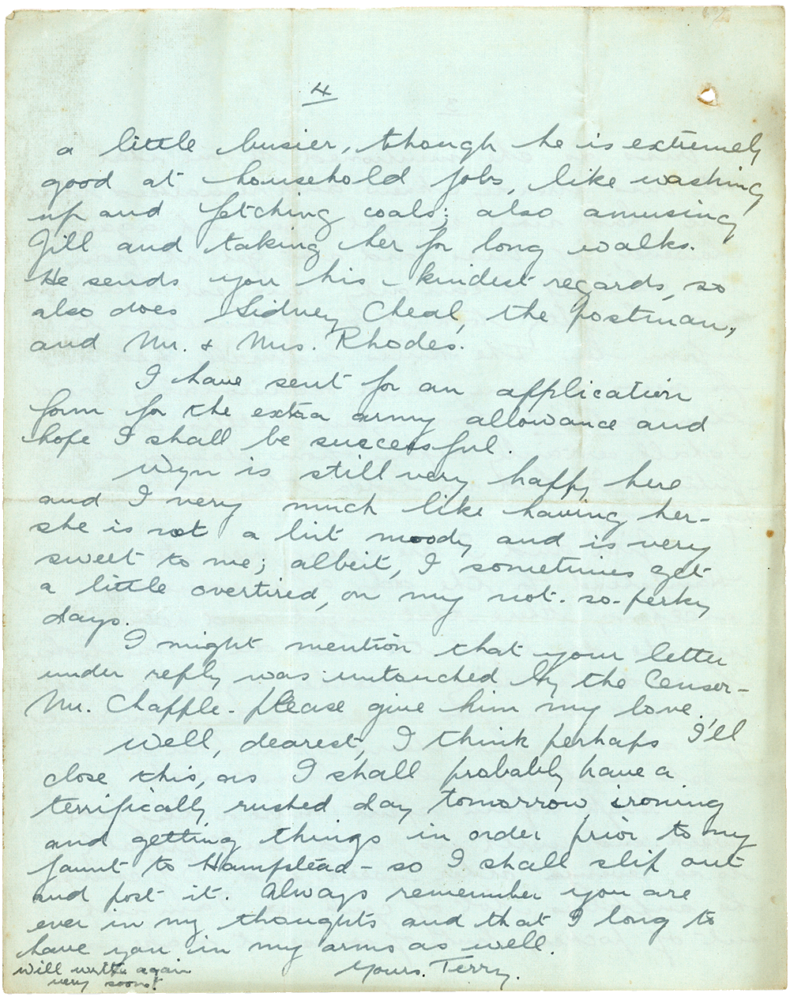 4
a little busier, though he is extremely
good at household jobs, like washing
up and fetching coals; also amusing
Jill and taking her for long walks.
He sends you his kindest regards, so
also does Sidney Cheal, the postman,
and Mr. & Mrs. Rhodes.
I have sent for an application
form for the extra army allowance and
hope I shall be successful.
Wyn is still very happy here
and I very much like having her-
she is not a bit moody and is very
sweet to me; albeit, I sometimes get
a little overtired, on my not-so-perky
days.
I might mention that your letter
under reply was untouched by the Censor-
Mr. Chapple- please give him my love.
Well, dearest, I think perhaps I'll
close this, as I shall probably have a
terrifically rushed day tomorrow ironing
and getting things in order prior to my
jaunt to Hampstead - so I shall slip out
and post it. Always remember you are
ever in my thoughts and that I long to
have you in my arms as well.
Yours. Terry.
will write again
very soon!